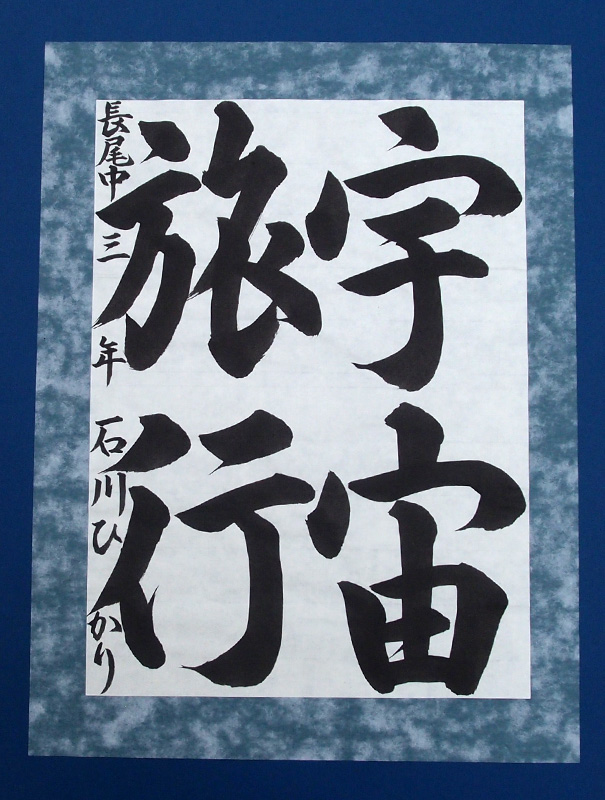 宇宙
旅行
長尾中三年 石川ひかり